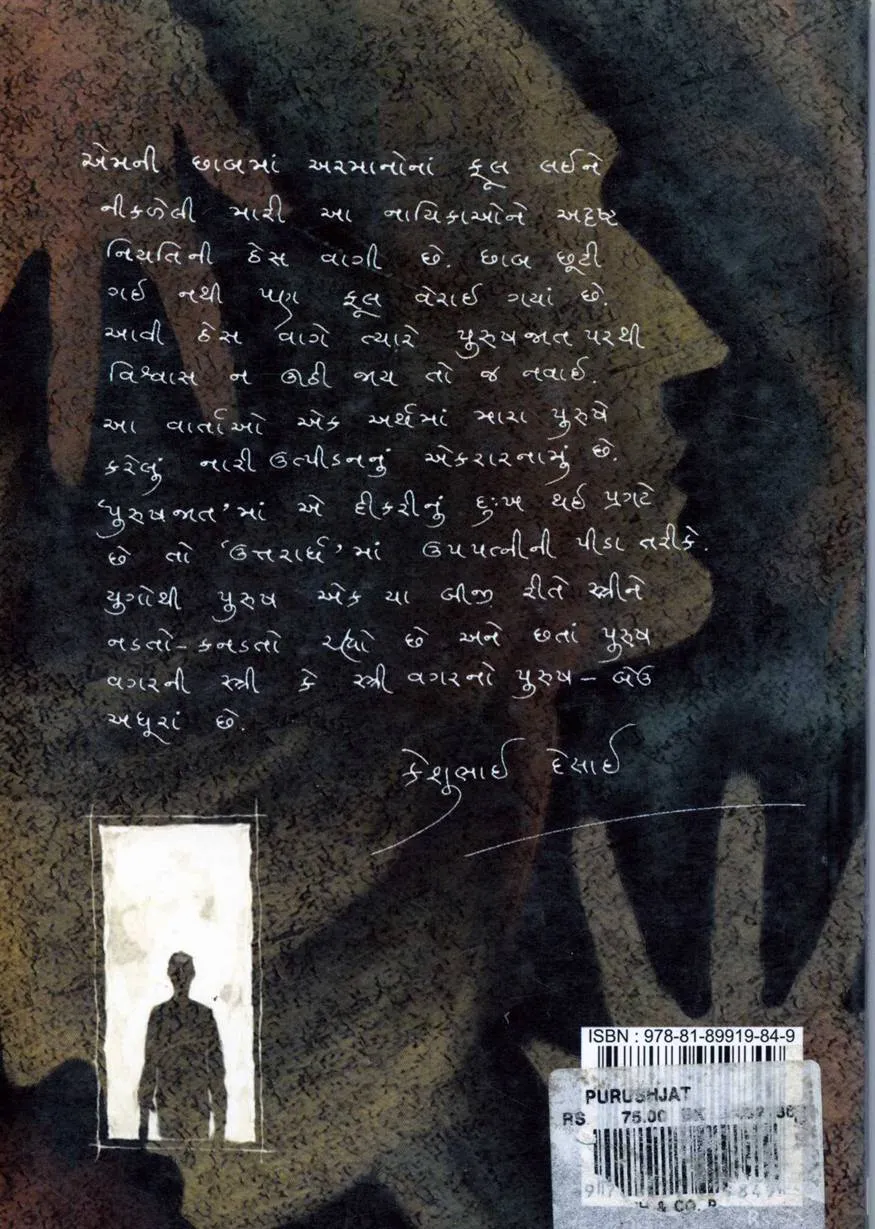 એમની છાબમાં અરમાનોનાં ફૂલ લઈને
નીકળેલી મારી આ નાયિકાઓને અદૃષ્ટ
નિયતિની ઠેસ વાગી છે. છાબ છૂટી
ગઈ નથી પણ ફૂલ વેરાઈ ગયાં છે.
આવી ઠેસ વાગે ત્યારે પુરુષજાત પરથી
વિશ્વાસ ન ઊઠી જાય તો જ નવાઈ.
આ વાર્તાઓ એક અર્થમાં મારા પુરુષે
કરેલું નારી ઉત્પીડનનું એકરારનામું છે.
‘પુરુષજાત’માં એ દીકરીનું દુઃખ થઈ પ્રગટે
છે તો ‘ઉત્તરાર્ધ’માં ઉપપત્નીની પીડા તરીકે.
યુગોથી પુરુષ એક યા બીજી રીતે સ્ત્રીને
નડતો-કનડતો રહ્યો છે અને છતાં પુરુષ
વગરની સ્ત્રી કે સ્ત્રી વગરનો પુરુષ – બેઉ
અધૂરાં છે.
કેશુભાઈ દેસાઈ
ISBN : 978-81-89919-84-9
PURUSHJAT
RS 75.00
& CO.